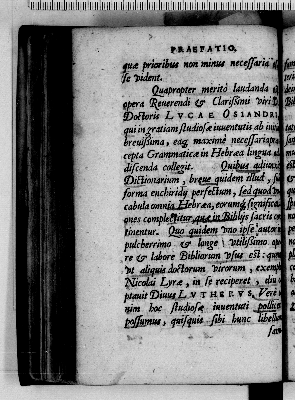 PRAEFATIO.
quæ prioribus non minus necessaria es
se vident.
Quapropter meritò laudanda
opera Reverendi & Clarissimi viri D.
Doctoris LVCAE OSIANDRI,
qui in gratiam studiosæ iuventutis ab
brevissima, eaq; maximè necessaria præ
cepta Grammaticæ in Hebræa lingua
discenda collegit. Quibus adiunxit
Dictionarium, breve quidem illud, sub
forma enchiridij perfectum, sed quod vo
cabula omnia Hebræa, eorumq; significa
ones complectitur, quæ in Biblijs sacris con
tinentur. Quo quidem uno ipse autor
pulcherrimo & longè vtilissimo ope
re & labore Bibliarum vsus est: quem
vt aliquis doctorum virorum, exempl
Nicolai Lyræ, in se reciperet, diu
ptavit Divus LVTHERVS. Veri e
nim hoc studiosæ iuventuti pollice
possumus, quisquis sibi hunc libellum
fam